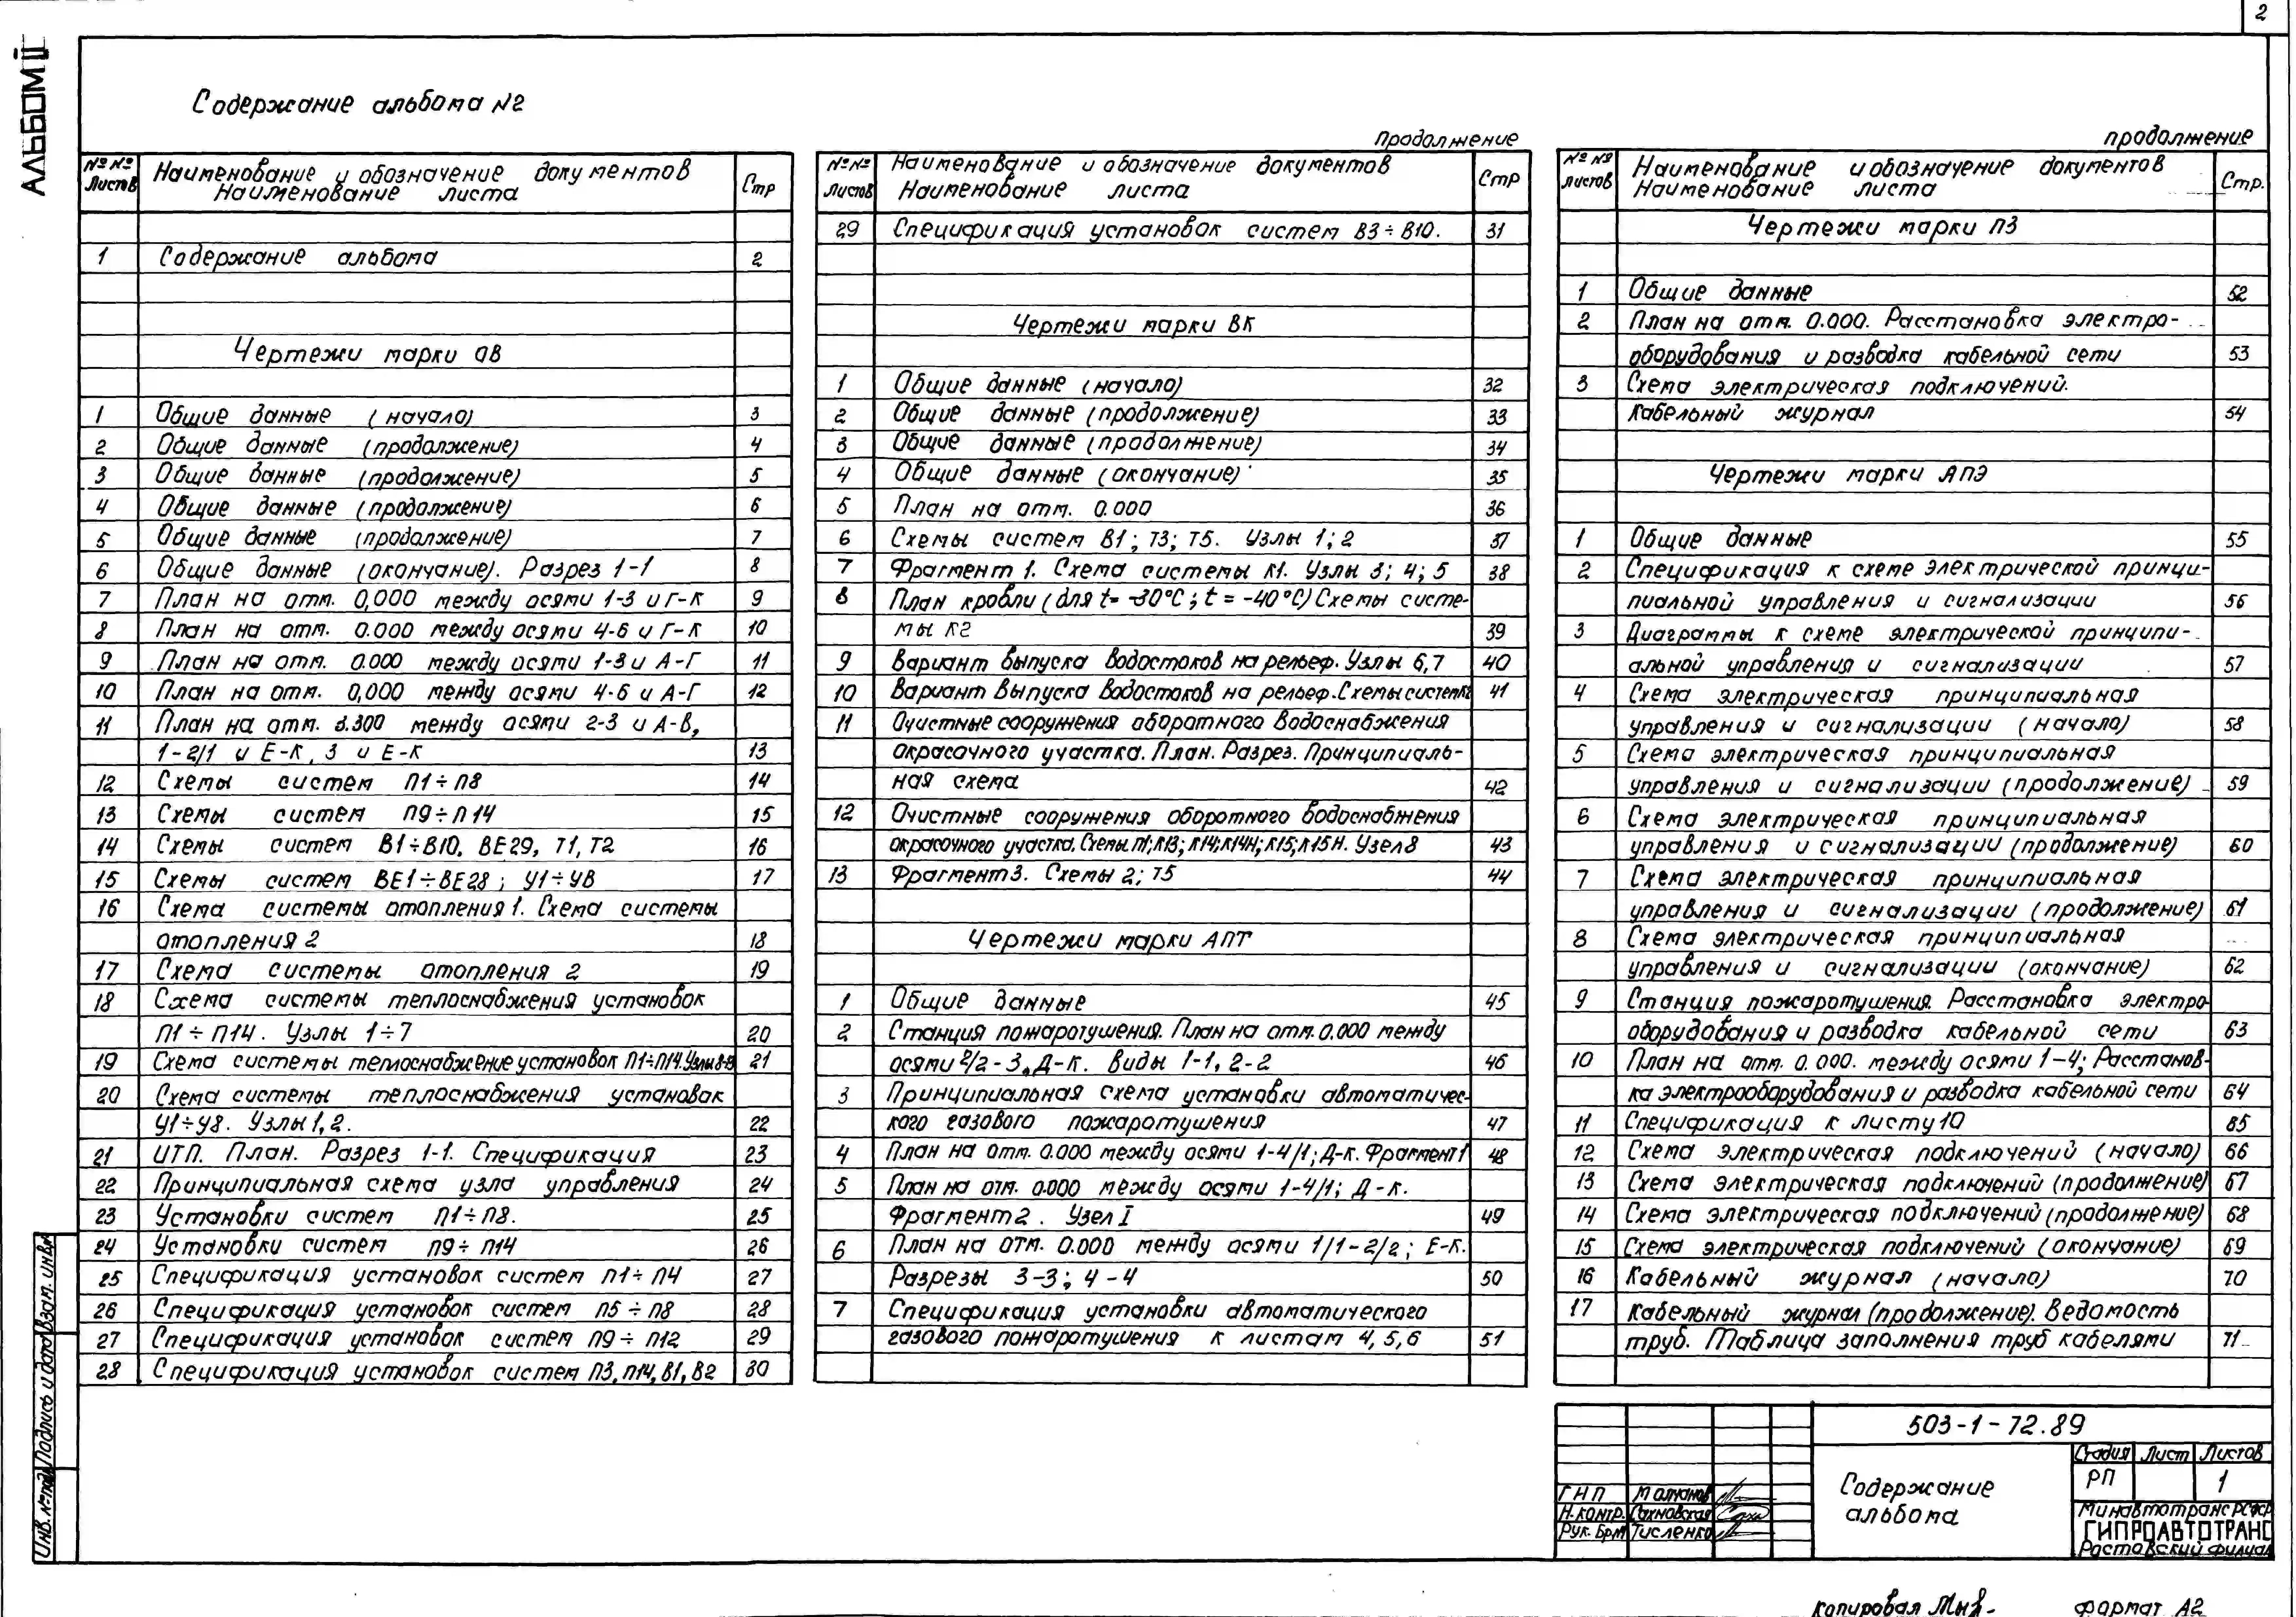 2
АЛЬБОМ II
Содержание альбома №2
№№ листов
Наименование и обозначение документов
Наименование листа
Стр
1 Содержание альбома 2
Чертежи марки ОВ
1 Общие данные (начало) 3
2 Общие данные (продолжение) 4
3 Общие данные (продолжение) 5
4 Общие данные (продолжение) 6
5 Общие данные (продолжение) 7
6 Общие данные (окончание). Разрез 1-1 8
7 План на отм. 0,000 между осями 1-3 и Г-К 9
8 План на отм. 0.000 между осями 4-6 и Г-К 10
9 План на отм. 0.000 между осями 1-3 и А-Г 11
10 План на отм. 0,000 между осями 4-6 и А-Г 12
11 План на отм. 3.300 между осями 2-3 и А-В,
1-2/1 и Е-К, 3 и Е-К 13
12 Схемы систем П1÷П8 14
13 Схемы систем П9÷П14 15
14 Схемы систем В1÷В10, ВЕ29, Т1, Т2 16
15 Схемы систем ВЕ1÷ВЕ28; У1÷У8 17
16 Схема системы отопления 1. Схема системы
отопления 2 18
17 Схема системы отопления 2 19
18 Схема системы теплоснабжения установок
П1÷П14. Узлы 1÷7 20
19 Схема системы теплоснабжение установок П1÷П14. Узлы 21
20 Схема системы теплоснабжения установок
У1÷У8. Узлы 1, 2. 22
21 ИТП. План. Разрез 1-1. Спецификация 23
22 Принципиальная схема узла управления 24
23 Установки систем П1÷П8. 25
24 Установки систем П9÷П14 26
25 Спецификация установок систем П1÷П4 27
26 Спецификация установок систем П5÷П8 28
27 Спецификация установок систем П9÷П12 29
28 Спецификация установок систем П3, П14, В1, В2 30
Продолжение
№№ листов
Наименование и обозначение документов
Наименование листа
Стр
29 Спецификация установок систем В3÷В10. 31
Чертежи марки ВК
1 Общие данные (начало) 32
2 Общие данные (продолжение) 33
3 Общие данные (продолжение) 34
4 Общие данные (окончание) 35
5 План на отм. 0.000 36
6 Схемы систем В1; Т3; Т5. Узлы 1; 2 37
7 Фрагмент 1. Схема системы К1. Узлы 3; 4; 5 38
8 План кровли (для t=-30°C; t=-40°C) Схемы систе-
мы К2 39
9 Вариант выпуска водостоков на рельеф. Узлы 6,7 40
10 Вариант выпуска водостоков на рельеф. Схемы 41
11 Очистные сооружения оборотного водоснабжения
окрасочного участка. План. Разрез. Принципиаль-
ная схема 42
12 Очистные сооружения оборотного водоснабжения
окрасочного участка. Схемы К13; К14; К14Н; К15; К15Н. Узел 8 43
13 Фрагмент 3. Схемы 2; Т5 44
Чертежи марки АПТ
1 Общие данные 45
2 Станция пожаротушения. План на отм. 0.000 между
осями 2/2-3, Д-К. Виды 1-1, 2-2 46
3 Принципиальная схема установки автоматичес-
кого газового пожаротушения 47
4 План на отм. 0.000 между осями 1-4/1; Д-К. Фрагмент 1 48
5 План на отм. 0.000 между осями 1-4/1; Д-К.
Фрагмент 2. Узел I 49
6 План на отм. 0.000 между осями 1/1-2/2; Е-К.
Разрезы 3-3; 4-4 50
7 Спецификация установки автоматического
газового пожаротушения к листам 4, 5, 6 51
продолжение
№№ листов
Наименование и обозначение документов
Наименование листа
Стр.
Чертежи марки ПЗ
1 Общие данные 52
2 План на отм. 0.000. Расстановка электро-
оборудования и разводка кабельной сети 53
3 Схема электрическая подключений.
Кабельный журнал 54
Чертежи марки АПЭ
1 Общие данные 55
2 Спецификация к схеме электрической принци-
пиальной управления и сигнализации 56
3 Диаграммы к схеме электрической принципи-
альной управления и сигнализации 57
4 Схема электрическая принципиальная
управления и сигнализации (начало) 58
5 Схема электрическая принципиальная
управления и сигнализации (продолжение) 59
6 Схема электрическая принципиальная
управления и сигнализации (продолжение) 60
7 Схема электрическая принципиальная
управления и сигнализации (продолжение) 61
8 Схема электрическая принципиальная
управления и сигнализации (окончание) 62
9 Станция пожаротушения. Расстановка электро-
оборудования и разводка кабельной сети 63
10 План на отм. 0.000. между осями 1-4; Расстанов-
ка электрооборудования и разводка кабельной сети 64
11 Спецификация к листу 10 65
12 Схема электрическая подключений (начало) 66
13 Схема электрическая подключений (продолжение) 67
14 Схема электрическая подключений (продолжение) 68
15 Схема электрическая подключений (окончание) 69
16 Кабельный журнал (начало) 70
17 Кабельный журнал (продолжение). Ведомость
труб. Таблица заполнения труб кабелями 71
503-1-72.89
Содержание
альбома
Стадия Лист Листов
РП 1
ГИП Молчанов
Н.контр. Сахновская
Рук. Бриг Тисленко
Минавтотранс РСФСР
ГИПРОАВТОТРАНС
Ростовский филиал
Инв. № подл. Подпись и дата Взам. инв. №
копировал
формат А2